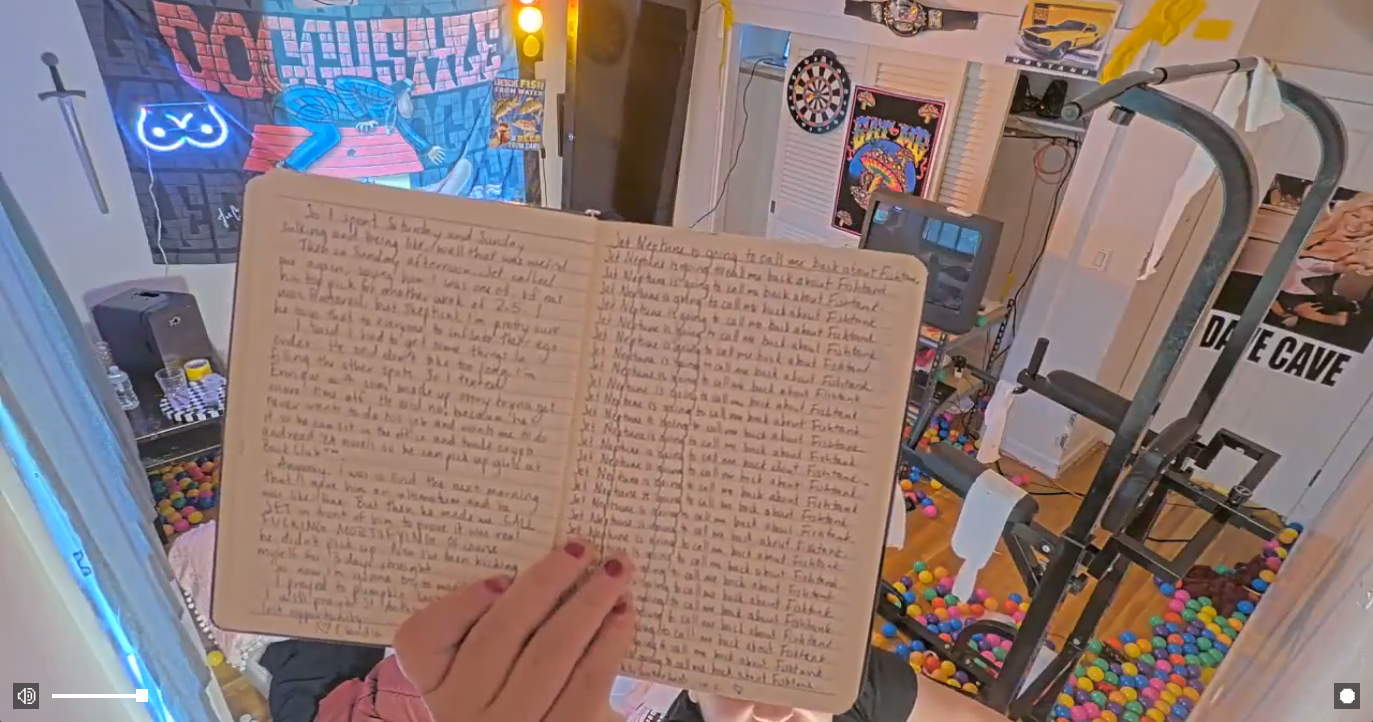 DO
HAUS
ME
FISH
FROM WATER
BEER
EAT ME
MUSTANG
DAVE CAVE
So I spent Saturday and Sunday
sulking and being like well that was weird
Then on Sunday afternoon Jet called
me again, saying how I was one of, if not
his top pick for another week of 2.5. I
was flattered but skeptical. I'm pretty sure
he says that to everyone to inflate their ego.
I said I had to get some things in
order. He said don't take too long I'm
filling the other spots. So I texted
Enrique with some made up story trying to get
more time off. He said no, because he'd
never want to do his job and wants me to do
it so he can sit in the office and
and read YA novels so he can pick up girls at
book club
Anyway. I was so livid the next morning
that I gave him an ultimatum and he
was like fine. But then he made me CALL
JET in front of him to prove it was real
FUCKING MORTIFYING. Of course
he didn't pick up. Now I've been kicking
myself for days straight.
So now I'm gonna try to
I prayed to
I will
lost opportunity
♡ Claudia
Jet Neptune is going to call me back about Fishtank
Jet Neptune is going to call me back about Fishtank.
Jet Neptune is going to call me back about Fishtank.
Jet Neptune is going to call me back about Fishtank.
Jet Neptune is going to call me back about Fishtank.
Jet Neptune is going to call me back about Fishtank.
Jet Neptune is going to call me back about Fishtank.
Jet Neptune is going to call me back about Fishtank.
Jet Neptune is going to call me back about Fishtank.
Jet Neptune is going to call me back about Fishtank.
Jet Neptune is going to call me back about Fishtank.
Jet Neptune is going to call me back about Fishtank.
Jet Neptune is going to call me back about Fishtank.
Jet Neptune is going to call me back about Fishtank.
Jet Neptune is going to call me back about Fishtank.
Jet Neptune is going to call me back about Fishtank.
Jet Neptune is going to call me back about Fishtank.
Jet Neptune is going to call me back about Fishtank.
is going to call me back about Fishtank.
going to call me back about Fishtank.
going to call me back about Fishtank.
to call me back about Fishtank.
to call me back about Fishtank.
to call me back about Fishtank.